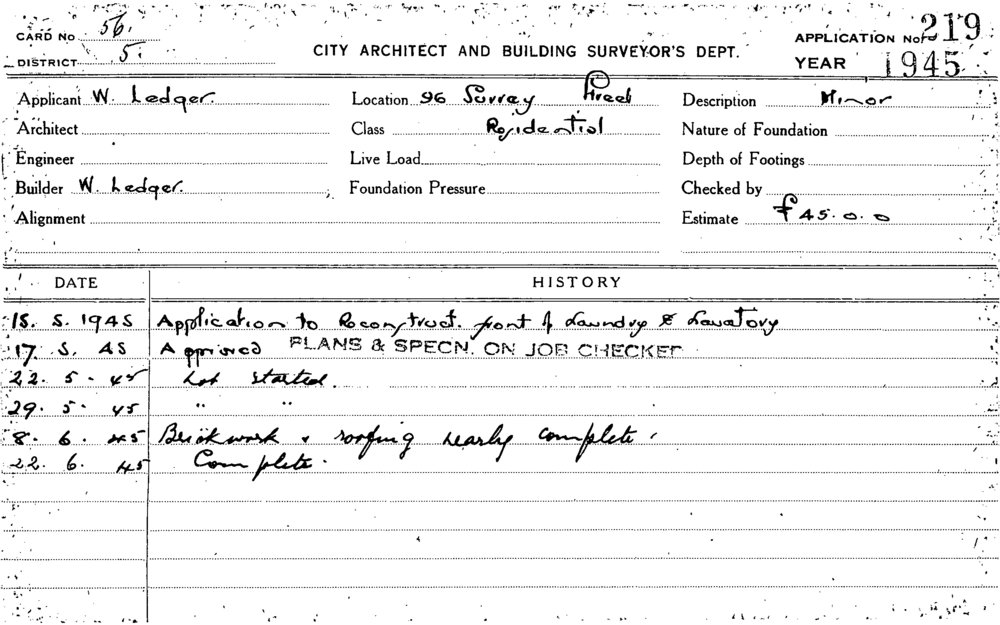 CARD No 56.
DISTRICT 5.
CITY ARCHITECT AND BUILDING SURVEYOR'S DEPT.
APPLICATION No. 219
YEAR 1945
Applicant W. Ledger. Location 96 Surrey Street Description Minor
Architect Class Residential Nature of Foundation
Engineer Live Load Depth of Footings
Builder W. Ledger. Foundation Pressure Checked by
Alignment Estimate £45.0.0
DATE HISTORY
15. 5. 1945 Application to Reconstruct. front of Laundry & Lavatory
17. 5. 45 Approved PLANS & SPECN. ON JOB CHECKED
22. 5. 45 Not started.
29. 5. 45 " "
8. 6. 45 Brickwork & roofing nearly complete.
22. 6. 45 Complete.